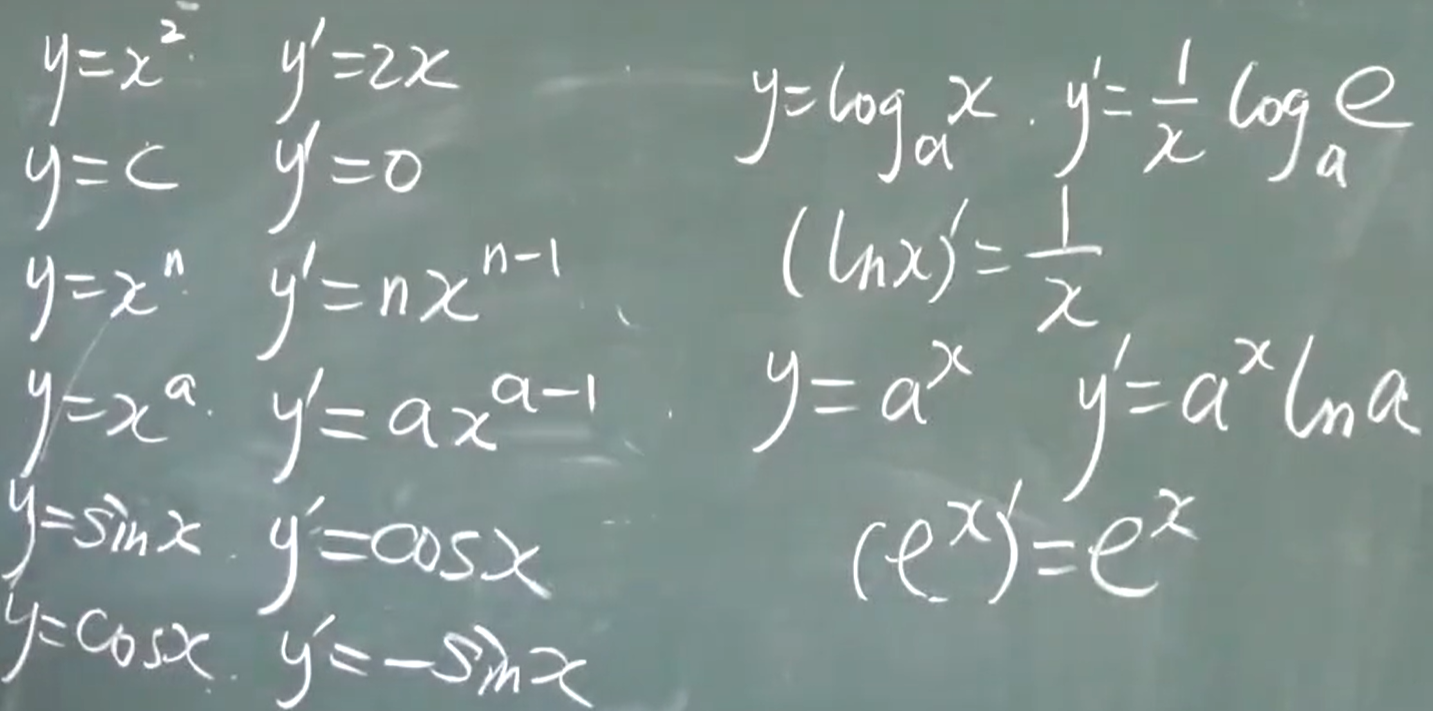 y=x² y'=2x
y=c y'=0
y=xⁿ y'=nxⁿ⁻¹
y=xᵃ y'=axᵃ⁻¹
y=sinx y'=cosx
y=cosx y'=-sinx
y=logₐx y'=1/x logₐe
(lnx)'=1/x
y=aˣ y'=aˣlna
(eˣ)'=eˣ